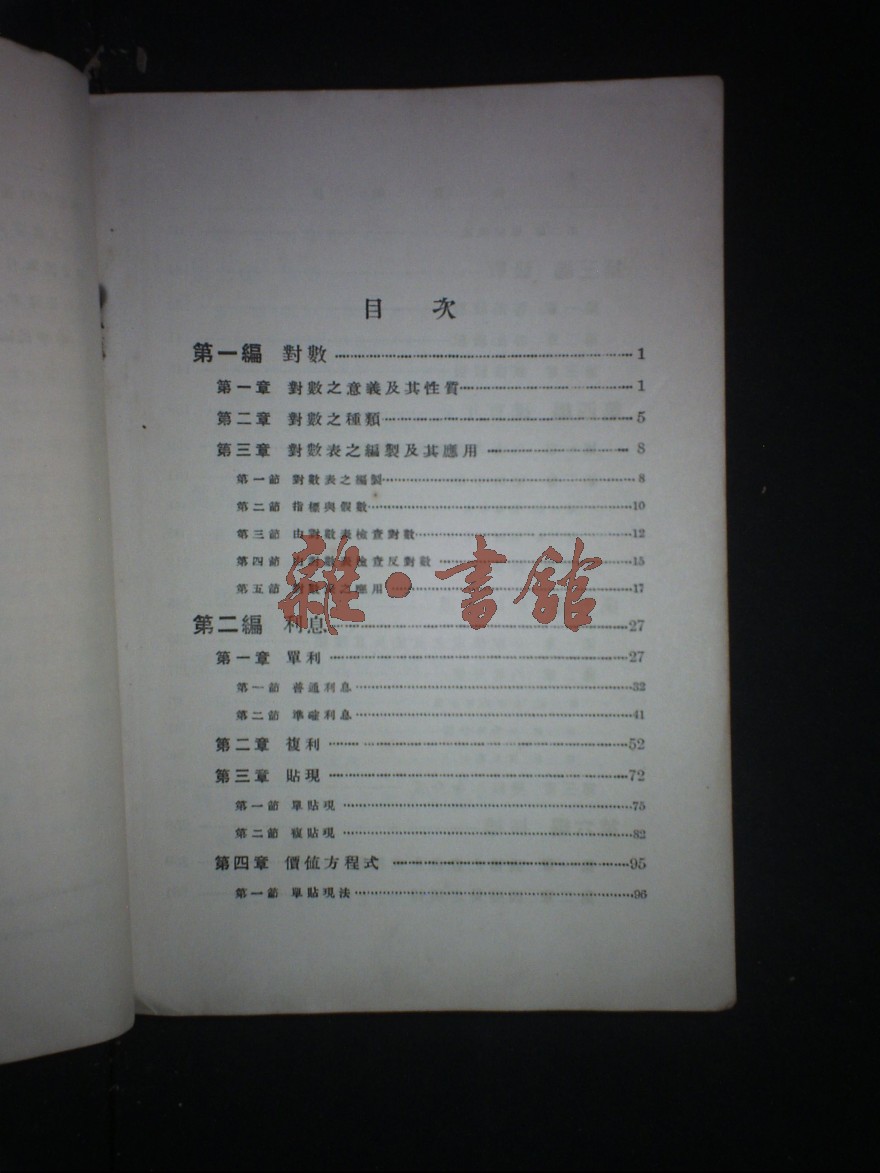 目　次
第一編 對數……1
第一章 對數之意義及其性質……1
第二章 對數之種類……5
第三章 對數表之編製及其應用……8
第一節 對數表之編製……8
第二節 指標與假數……10
第三節 由對數表檢查對數……12
第四節 由對數表檢查反對數……15
第五節 對數表之應用……17
雜·書館
第二編 利息……27
第一章 單利……27
第一節 普通利息……32
第二節 準確利息……41
第二章 複利……52
第三章 貼現……72
第一節 單貼現……75
第二節 複貼現……82
第四章 價值方程式……95
第一節 單貼現法……96